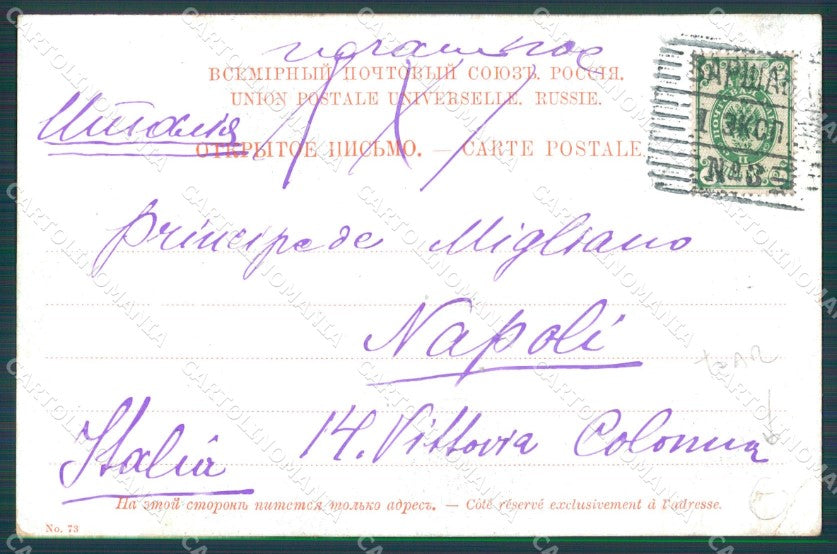 печатное
ВСЕМІРНЫЙ ПОЧТОВЫЙ СОЮЗЪ. РОССІЯ.
UNION POSTALE UNIVERSELLE. RUSSIE.
Италія
ОТКРЫТОЕ ПИСЬМО. — CARTE POSTALE.
ВАРШАВ
1 ЭКСП
№ 3
Principe de Migliano
Napoli
14. Vittoria Colonna
Italia
На этой сторонѣ пишется только адресъ. — Côté réservé exclusivement à l'adresse.
No. 73
CARTOLINOMANIA